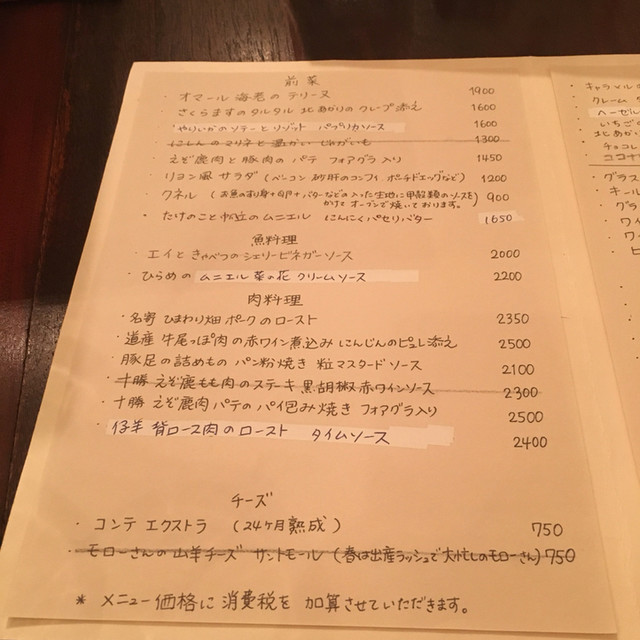 前菜
・オマール海老のテリーヌ 1900
・さくらますのタルタル 北あかりのクレープ添え 1600
・やりいかのソテーとリゾット パプリカソース 1600
・にしんのマリネと温かいじゃがいも 1300
・えぞ鹿肉と豚肉のパテ フォアグラ入り 1450
・リヨン風サラダ (ベーコン 砂肝のコンフィ、ポーチドエッグなど) 1200
・クネル (お魚のすり身+卵+バターなどの入った生地に甲殻類のソースを 900
かけてオーブンで焼いております。)
・たけのこと帆立のムニエル にんにくパセリバター 1650
魚料理
・エイときゃべつのシェリービネガーソース 2000
・ひらめのムニエル菜の花 クリームソース 2200
肉料理
・名寄 ひまわり畑ポークのロースト 2350
・道産 牛尾っぽ肉の赤ワイン煮込み にんじんのピュレ添え 2500
・豚足の詰めもの パン粉焼き 粒マスタードソース 2100
・十勝 えぞ鹿もも肉のステーキ 黒胡椒赤ワインソース 2300
・十勝 えぞ鹿肉パテのパイ包み焼き フォアグラ入り 2500
・仔羊 背ロース肉のロースト タイムソース 2400
チーズ
・コンテ エクストラ (24ヶ月熟成) 750
・モローさんの山羊チーズ サントモール (春は出産ラッシュで大忙しのモローさん) 750
* メニュー価格に消費税を加算させていただきます。
・キャラメル
・クレーム
・ヘーゼル
・いちご
・北あかり
・チョコレ
ココナ
・グラス
・キール
・グラ
・ワイ
・ワイ
・ビ